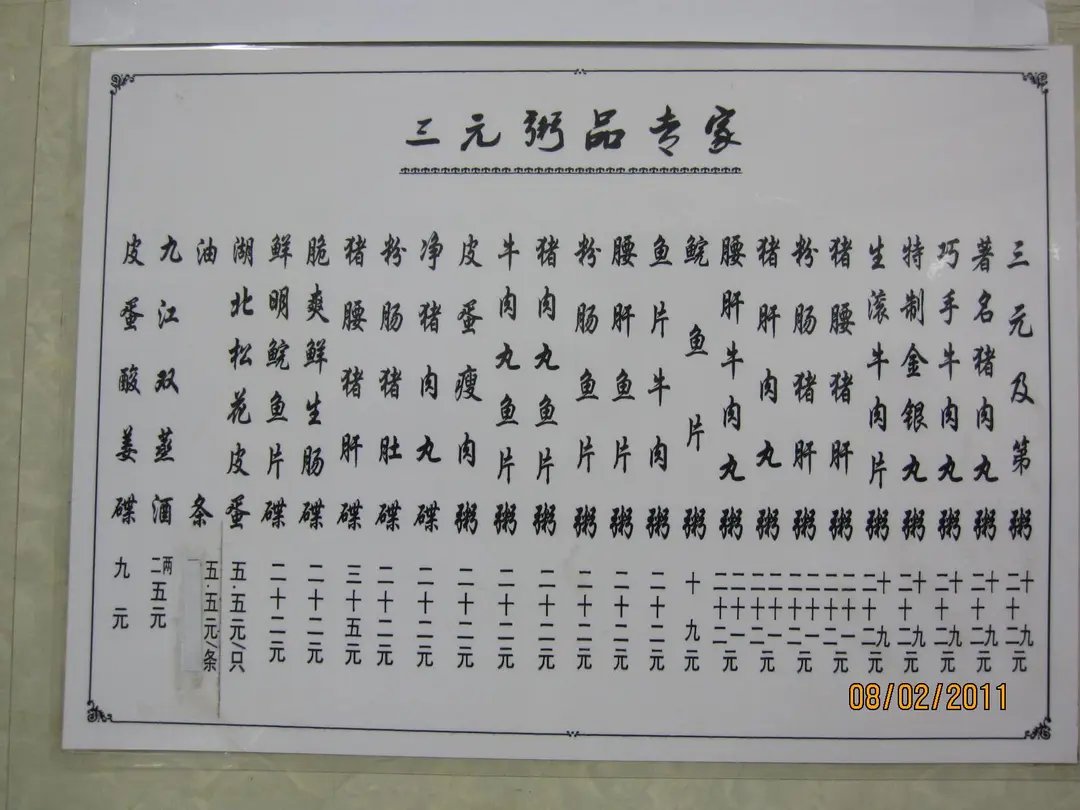 三元粥品专家
三元及第粥 十九 二十二元
著名猪肉丸粥 十九 二十二元
巧手牛肉丸粥 十九 二十二元
特制金银丸粥 十九 二十二元
生滚牛肉片粥 十九 二十二元
猪腰猪肝粥 二十一 二十二元
粉肠猪肝粥 二十一 二十二元
猪肝肉丸粥 二十一 二十二元
腰肝牛肉丸粥 二十一 二十二元
鲩鱼片粥 十九元
鱼片牛肉粥 二十二元
腰肝鱼片粥 二十二元
粉肠鱼片粥 二十二元
猪肉丸鱼片粥 二十二元
牛肉丸鱼片粥 二十二元
皮蛋瘦肉粥 二十二元
净猪肉丸碟 二十二元
粉肠猪肚碟 二十二元
猪腰猪肝碟 三十五元
脆爽鲜生肠碟 二十二元
鲜明鲩鱼片碟 二十二元
湖北松花皮蛋 五.五元/只
油条 五.五元/条
九江双蒸酒 二两五元
皮蛋酸姜碟 九元
08/02/2011